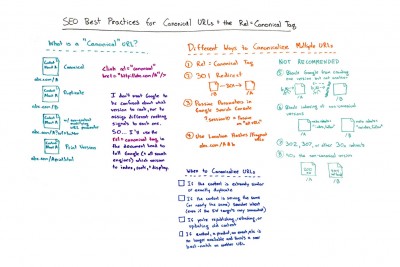 SEO Best Practices for Canonical URLs + the Rel=Canonical Tag
What is a "Canonical" URL?
Canonical
abc.com/A
Duplicate
abc.com/B
w/ non-content modifying URL parameter
Print Version
<link rel="canonical"
href="http://abc.com/A"/>
I don't want Google
to be confused about what
version to rank, nor to
assign different ranking
signals to each one.
SO... I'll use the
rel=canonical tag in
the document head to
tell Google (& all search
engines) which version
to index, rank, & display.
Different Ways to Canonicalize Multiple URLs
① Rel = Canonical
② 301 Redirect
301
/B
/A
③ Passive Parameters in
Google Search Console
④ Use Location Hashes/Fragment
URLs
abc.com/A#b
NOT RECOMMENDED
⑤ Block Google from crawling
one version but not another
/A
/B
⑥ Block indexing of non-canonical
versions
/A
/B
⑦ 302, 307, or other 30x redirects
⑧ 40x the non-canonical version
/A
/B
When to Canonicalize URLs
If the content is extremely similar
or exactly duplicate
If the content is serving the same
(or nearly the same) searcher intent
(even if the KW targets vary somewhat)
If you're republishing, refreshing, or
updating old content
If content, a product, an event, etc is
no longer available and there's a near
best-match on another URL